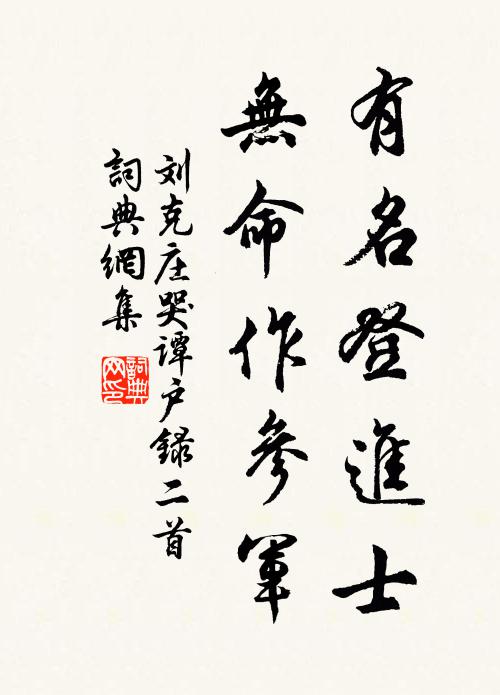 有名登進士
無命作參軍
刘克庄哭谭户録二首
詞典網集
詞典
网印